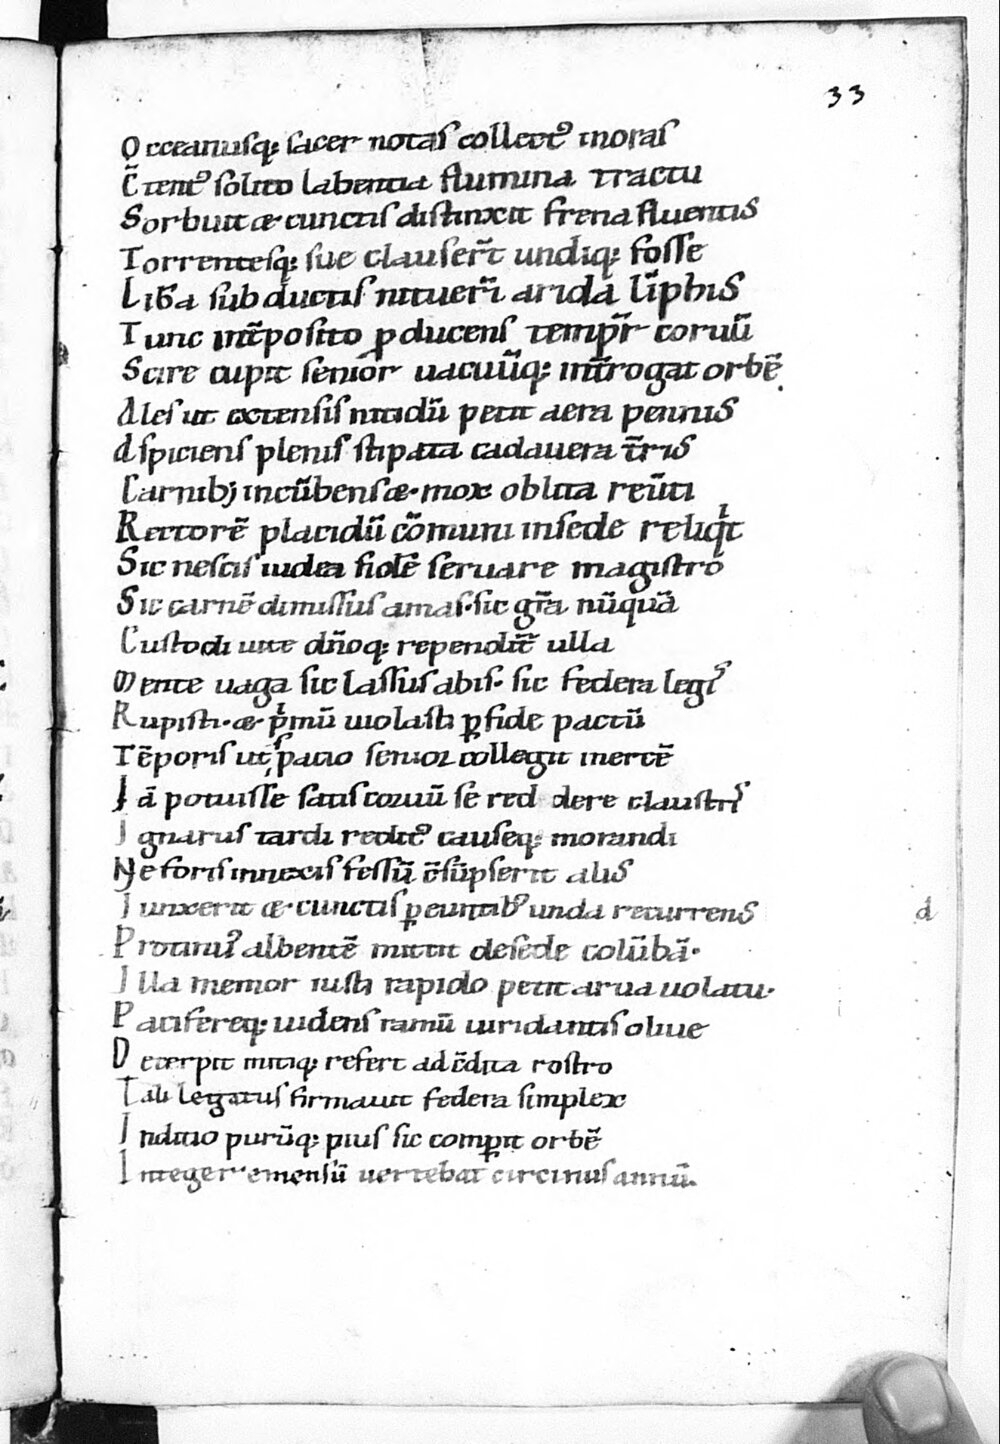 33
Occeanusq; sacer notas collectꝰ in oras
C̄tentꝰ solito labentia flumina tractu
Sorbuit æ cunctis distinxit frena fluentis
Torrentesq; sue clauser̄t undiq; fosse
Lib̄a sub ductis nituer̄t arida līphis
Tunc int̄posito ꝓducens tempr̄ coruū
Scire cupit senior uacuūq; int̄rogat orbē.
Ales ut extensis nitidū petit aera pennis
Aspiciens plenis stipata cadauera t̄ris
Carnibꝫ incūbens æ· mox oblita reūti
Rectorē placidū cōmuni insede reliqͥt
Sic nescis iudea fidē seruare magistro
Sic carnē dimissus amas· sic gr̄a nūquā
Custodi uite dn̄oq; rependit̄ ulla
Mente uaga sic lassus abis· sic federa legis
Rupisti· æ· pͥmū uiolasti ꝑfide pactū
Tēporis ut spacio senior collegit inertē
Iā potuisse satis coruū se red dere claustris
Ignarus tardi reditꝰ causeq; morandi
Ne foris innexis fessū c̄sūpserit alis
Iunxerit æ· cunctis ꝑeuntibꝰ unda recurrens
d
Protinꝰ albentē mittit desede colūbā·
Illa memor iusti rapido petit arua uolatu·
Pacifereq; uidens ramū uiridantis oliue
Decerpit mitiq; refert ad c̄dita rostro
Tali legatus firmauit federa simplex
Inditio purūq; pius sic comꝑit orbē
Integer emensū uertebat circinus annū.